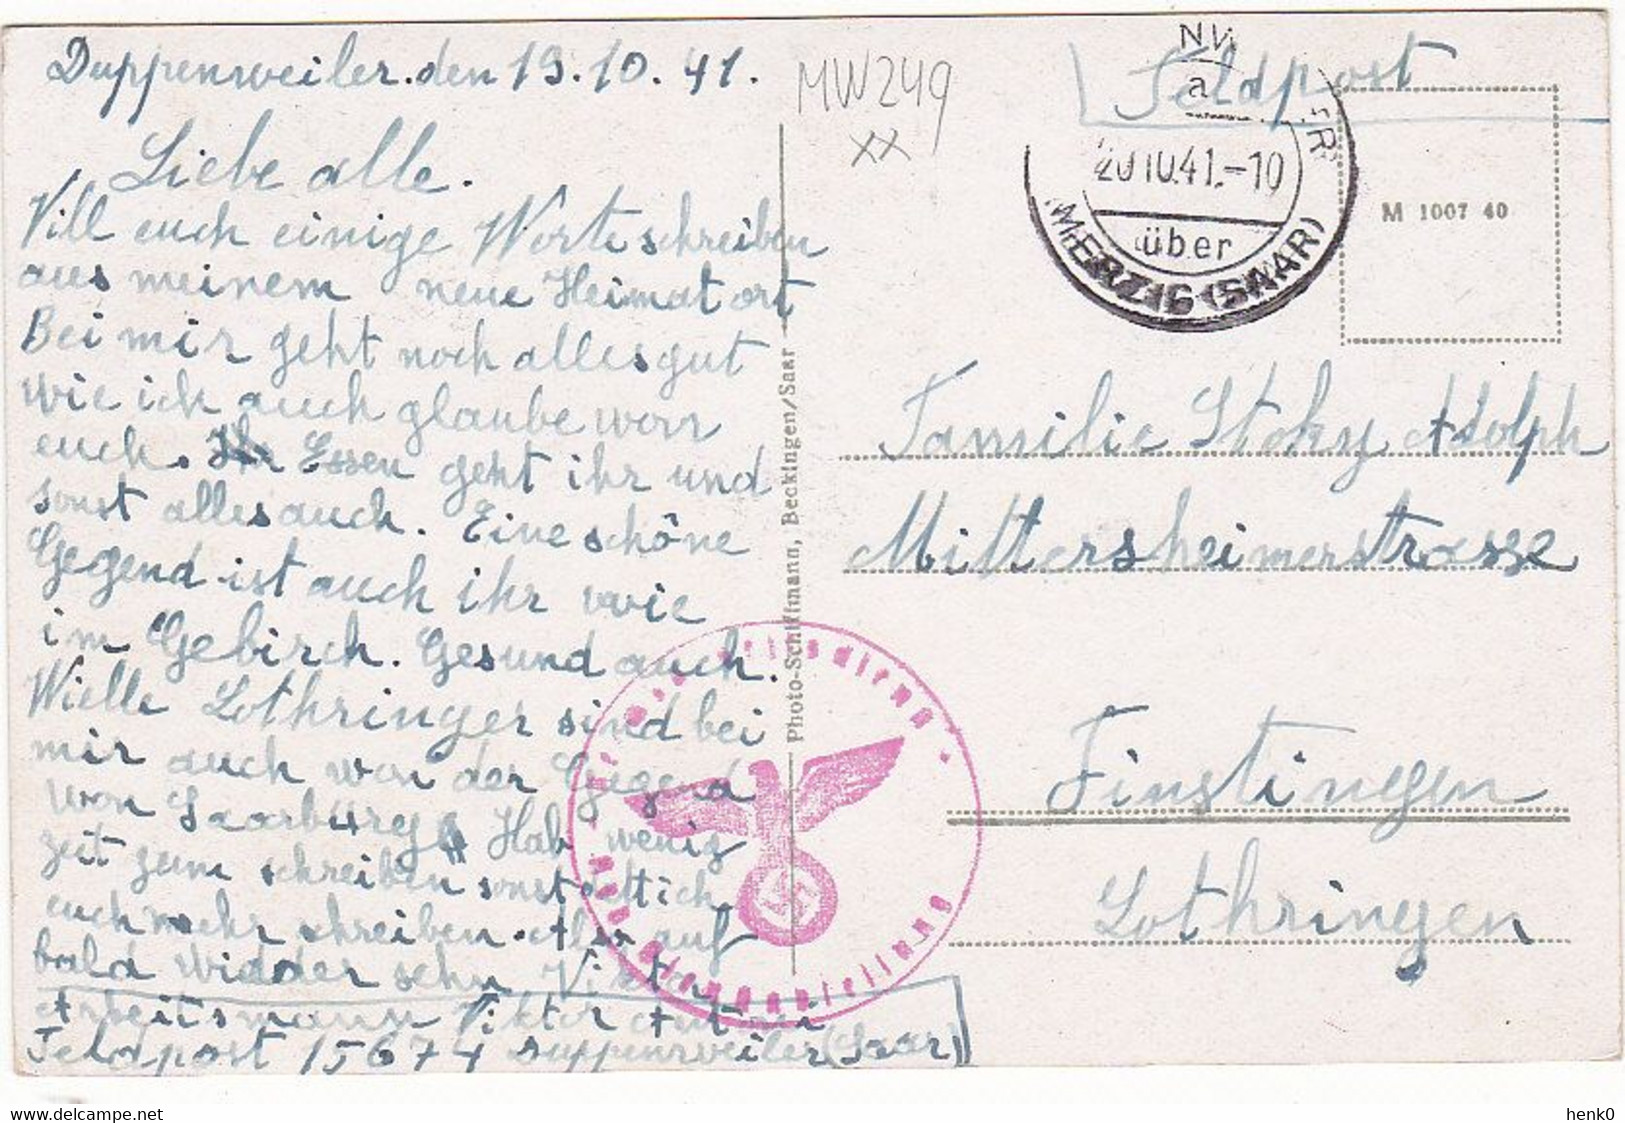 Düppenweiler.den 19.10.41.
Liebe alle.
Vill euch einige Worte schreiben
aus meinem neue Heimat ort
Bei mir geht noch alles gut
wie ich auch glaube von
euch. Essen geht ihr und
sonst alles auch. Eine schöne
Gegend ist auch ihr wie
im Gebirch. Gesund auch.
Wielle Lothringer sind bei
mir auch von der Gegend
von Saarburg Hab wenig
zeit zum schreiben sonst
euch mehr schreiben. Also auf
bald widder sehn Viktor
Arbeitsmann Viktor
Feldpost 15674 Düppenweiler (Saar)
MW249
xx
Feldpost
20.10.41.-10
über
MERZIG (SAAR)
M 1007 40
Familie Stoky Adolph
Mittersheimerstrasse
Finstingen
Lothringen
Photo-Schiffmann, Beckingen/Saar
henk0